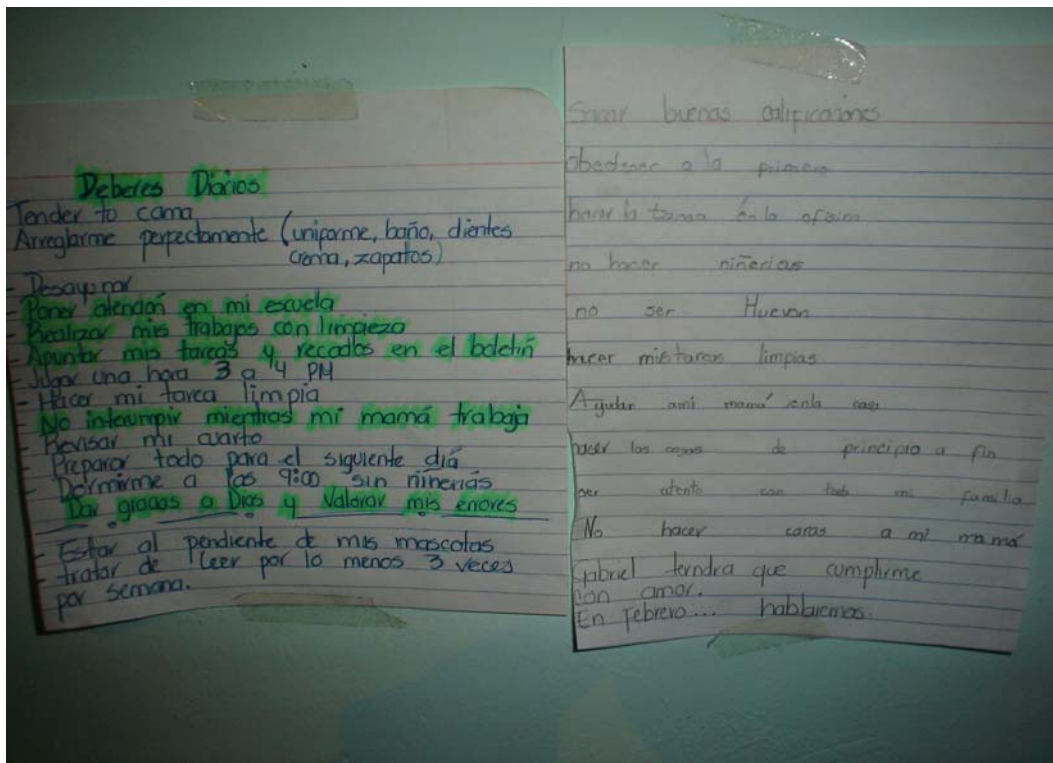 Deberes Diarios
Tender tu cama
Arreglarme perfectamente (uniforme, baño, dientes
crema, zapatos)
- Desayunar
- Poner atención en mi escuela
- Realizar mis trabajos con limpieza
- Apuntar mis tareas y recados en el boletín
- Jugar una hora 3 a 4 PM
- Hacer mi tarea limpia
- No interumpir mientras mi mamá trabaja
- Revisar mi cuarto
- Preparar todo para el siguiente día
- Dormirme a las 9:00 sin niñerías
Dar gracias a Dios y Valorar mis errores
- Estar al pendiente de mis mascotas
- tratar de leer por lo menos 3 veces
por semana.
Sacar buenas calificaciones
obedecer a la primera
hacer la tarea en la oficina
no hacer niñerias
no ser Huevon
hacer mis tareas limpias
Ayudar ami mamá enla casa
hacer las cosas de principio a fin
ser atento con toda mi familia
No hacer caras a mi mamá
Gabriel terndra que cumplirme
con amor.
En Febrero... hablaremos.